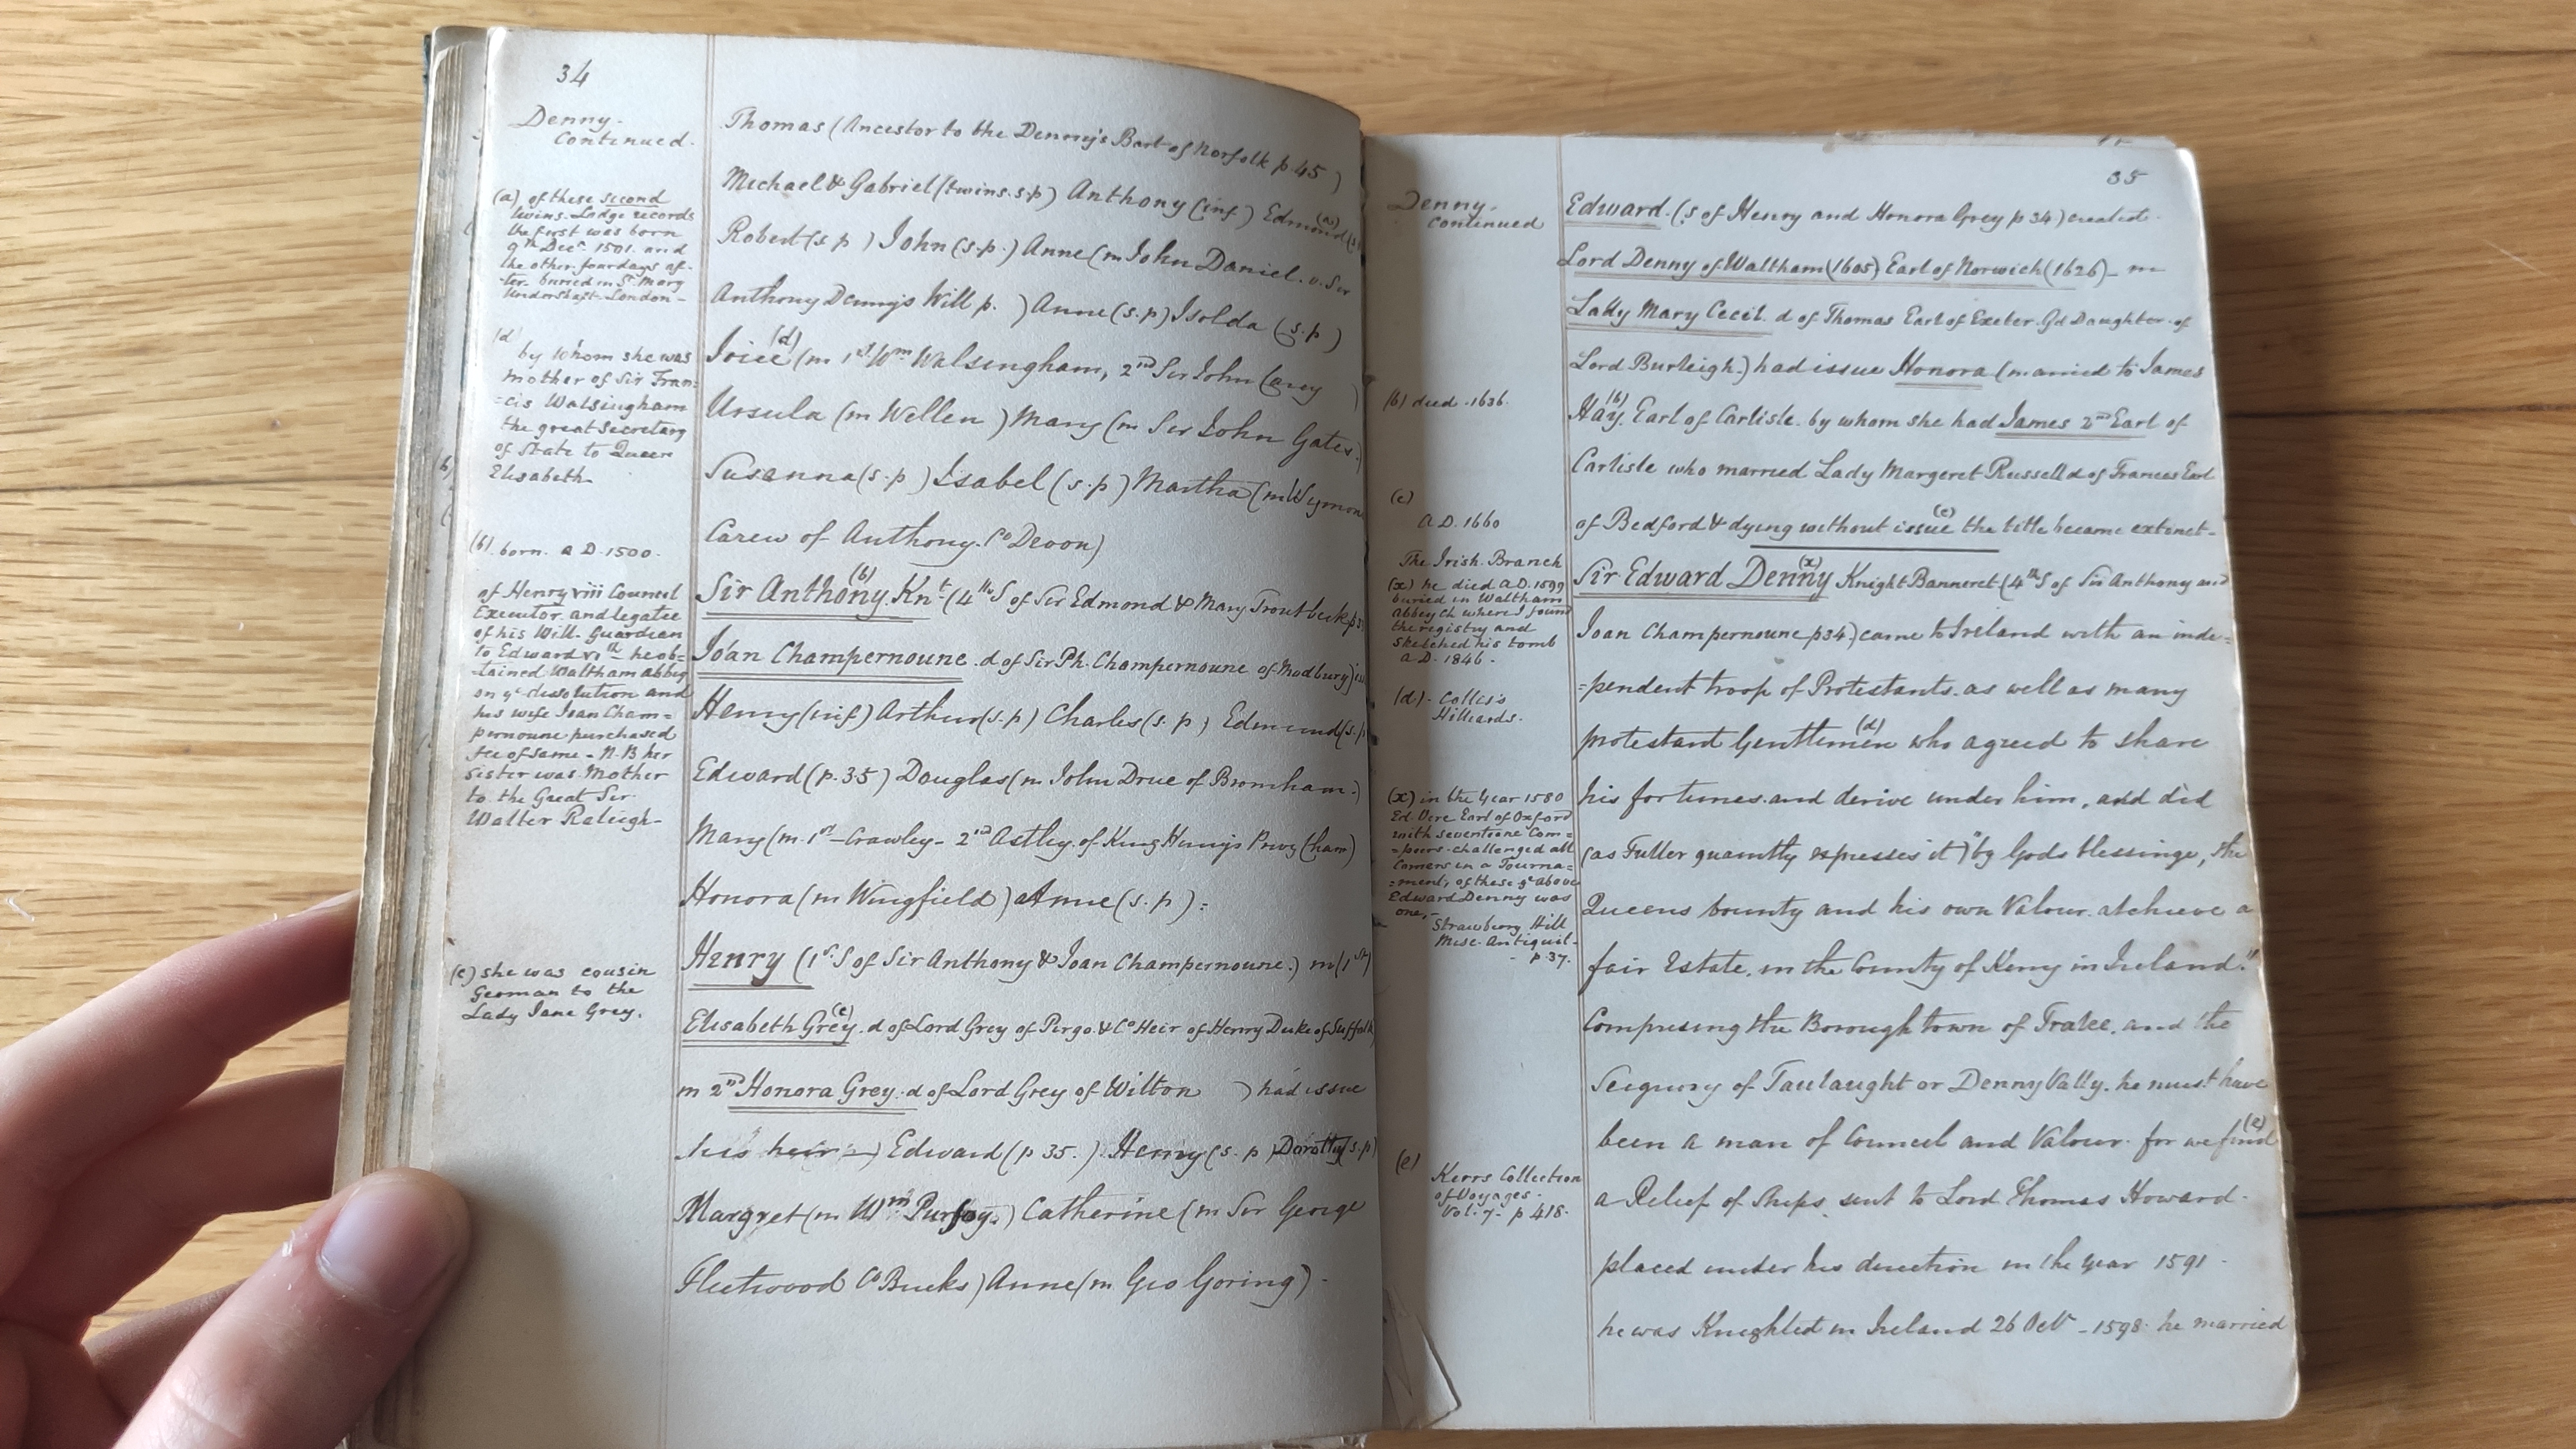 34
Denny-
Continued.
(a) of these second
twins. Lodge records
the first was born
9th Decr. 1501. and
the other four days af-
-ter- buried in St. Mary
Undershaft- London-
(d
by Whom she was
Mother of Sir Fran-
=cis Walsingham
the great Secretary
of State to Queen
Elisabeth-
(b). born. A D. 1500.
of Henry viii Council
Executor. and legatee
of his Will- Guardian
to Edward vith- he ob-
-tained Waltham abbey
on ye dissolution and
his wife Joan Cham=
pernoune purchased
fee of same - N.B her
Sister was Mother
to the Great Sir
Walter Raleigh-
(c) she was cousin
German to the
Lady Jane Grey.
Thomas (Ancestor to the Denny's Bart of Norfolk p. 45)
Michael & Gabriel (twins. s.p) Anthony (inf) Edmond (a)
Robert (s p) John (s.p.) Anne (m John Daniel. v. Sir
Anthony Denny's Will p. ) Anne (s.p) Isolda (s.p)
Joice (d) (m 1st Wm Walsingham, 2nd Sir John Carey )
Ursula (m Wellen ) Mary (m Sir John Gates.)
Susanna (s.p) Isabel (s.p) Martha (m Wymon
Carew of Anthony. Co Devon)
Sir Anthony (b) Knt (4th S of Sir Edmond & Mary Troutbeck p
Joan Champernoune. d of Sir Ph. Champernoune of Modbury)
Henry (inf) Arthur (s.p) Charles (s. p) Edmund (s.p
Edward (p. 35) Douglas (m John Drue of Bromham.)
Mary (m. 1st - Crawley - 2nd Astley. of King Henry's Privy Cham)
Honora (m Wingfield) Anne (s. p) :
Henry (1st S of Sir Anthony & Joan Champernoune.) m (1st)
Elisabeth Grey (c). d of Lord Grey of Pirgo. & Co Heir of Henry Duke of Suffolk
m 2nd Honora Grey. d of Lord Grey of Wilton ) had issue
his heir -) Edward (p 35.) Henry (s. p) Dorothy (s.p)
Margret (m Wm Purfoy.) Catherine (m Sir George
Fleetwood Co Bucks) Anne (m Geo Goring) -
35
Denny.
Continued
(b) died. 1636.
(c)
A D. 1660
The Irish Branch
(x) he died A.D. 1599
buried in Waltham
abbey Ch where I found
the registry and
sketched his tomb
A D. 1846.
(d). Collis's
Hilliards.
(x) in the Year 1580
Ed. Vere Earl of Oxford
with seventione Com=
=peers. challenged all
Comers in a Tourna=
=ment, of these ye above
Edward Denny was
one,-
Strawberry Hill
Misc. Antiquit-
- p 37.
(e)
Kerrs Collection
of Voyages.
Vol. 7- p 418.
Edward. (s of Henry and Honora Grey p 34) created.
Lord Denny of Waltham (1605) Earl of Norwich (1626) - m
Lady Mary Cecil. d of Thomas Earl of Exeter. Gd Daughter. of
Lord Burleigh.) had issue Honora (married to James
Hay (b). Earl of Carlisle. by whom she had James 2nd Earl of
Carlisle who married Lady Margeret Russell d of Frances Earl
of Bedford & dying without issue (c) the title became extinct-
Sir Edward Denny (x) Knight Banneret (4th S of Sir Anthony and
Joan Champernoune p 34) came to Ireland with an inde=
=pendent troop of Protestants. as well as many
protestant Gentlemen (d) who agreed to share
his fortunes. and derive under him, and did
(as Fuller quaintly expresses it) "by Gods blessinge, the
Queens bounty and his own Valour. atchieve a
fair Estate, in the County of Kerry in Ireland."
Comprising the Borough town of Tralee, and the
Seigniory of Taulaught or Denny Vally. he must have
been a man of Council and Valour. for we find (e)
a Relief of Ships sent to Lord Thomas Howard.
placed under his direction in the year 1591 -
he was Knighted in Ireland 26 Oct - 1598. he married